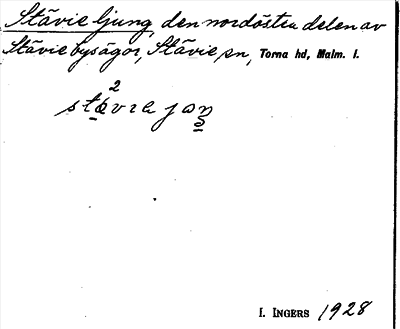 Stävie ljung, den nordöstra delen av
Stävie bysägor, Stävie sn, Torna hd, Malm. l.
I. INGERS 1928